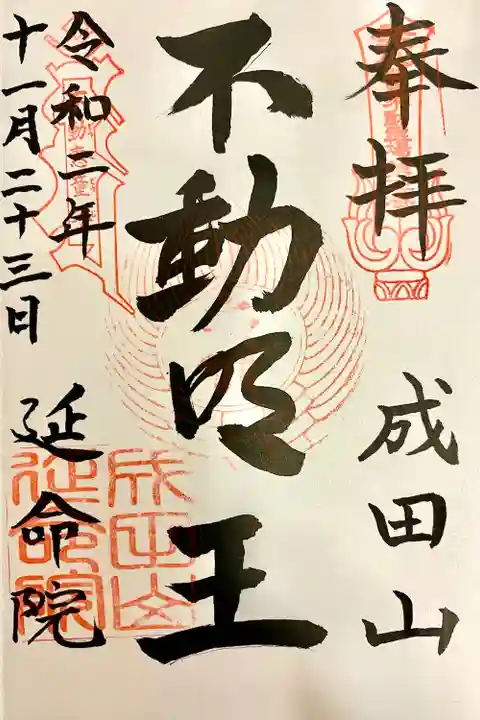 奉拝
成田山
不動明王
令和二年
十一月二十三日
延命院
成田山
延命院